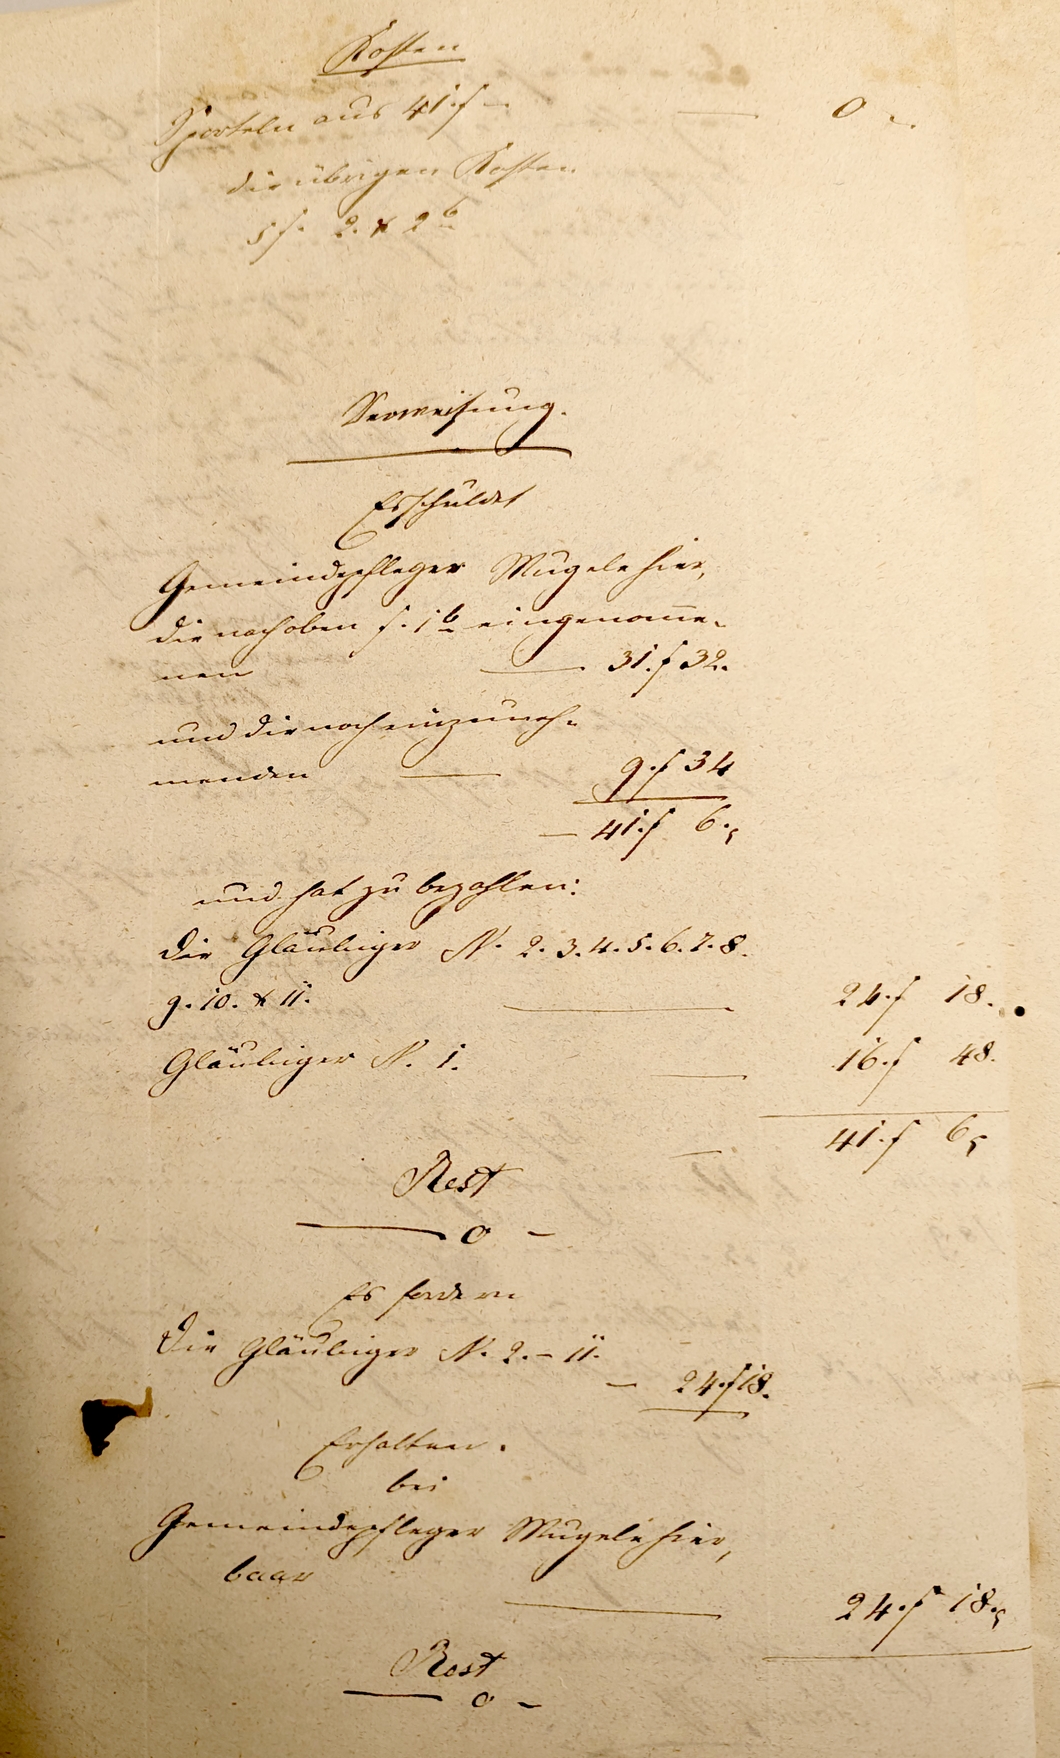 Kosten
Sporteln aus 41 f — — 0 –.
die übrigen Kosten
Verweisung.
Es schuldet
Gemeindepfleger Mugele hier,
die nach oben S. 1b eingenom̅e-
nen — 31. f 32.
und die noch einzuneh-
menden — 9. f 34
— 41. f 6.
und hat zu bezahlen:
die Gläubiger N. 2. 3. 4. 5. 6. 7. 8.
9. 10. & 11. — 24. f 18.
Gläubiger N. 1. — 16. f 48.
— 41. f 6
Rest
— 0 –
Es fordern
Die Gläubiger N. 2. – 11.
— 24. f 18.
Erhalten.
bei
Gemeindepfleger Mugele hier,
baar — 24. f 18.
Rest
— 0 –